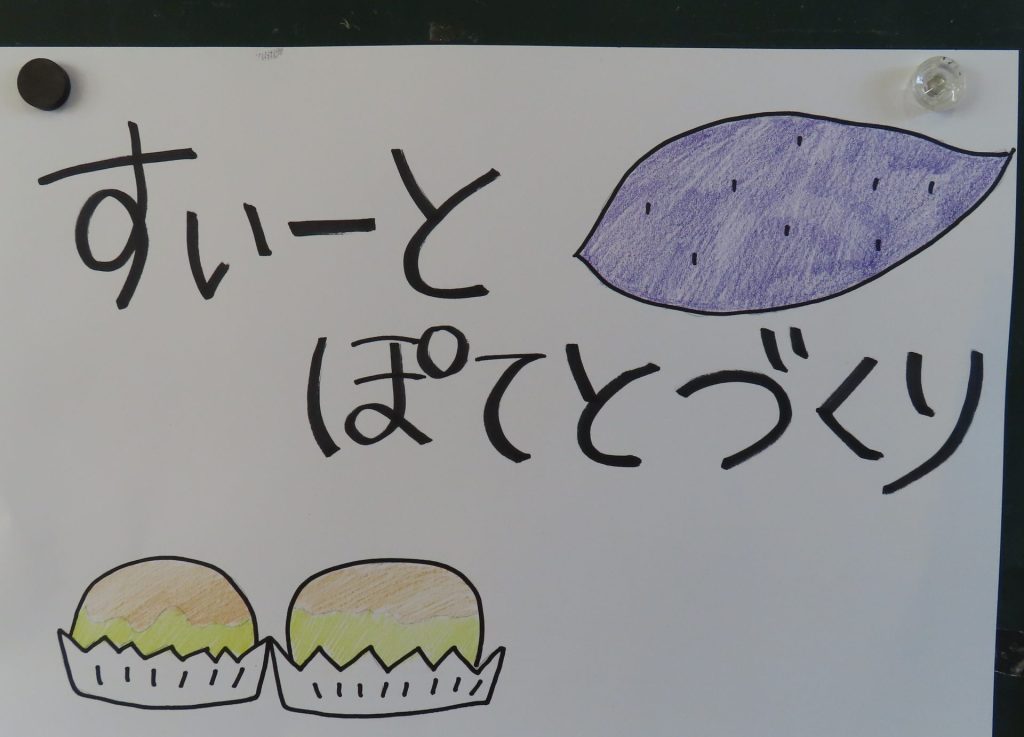 すいーと
ぽてとづくり